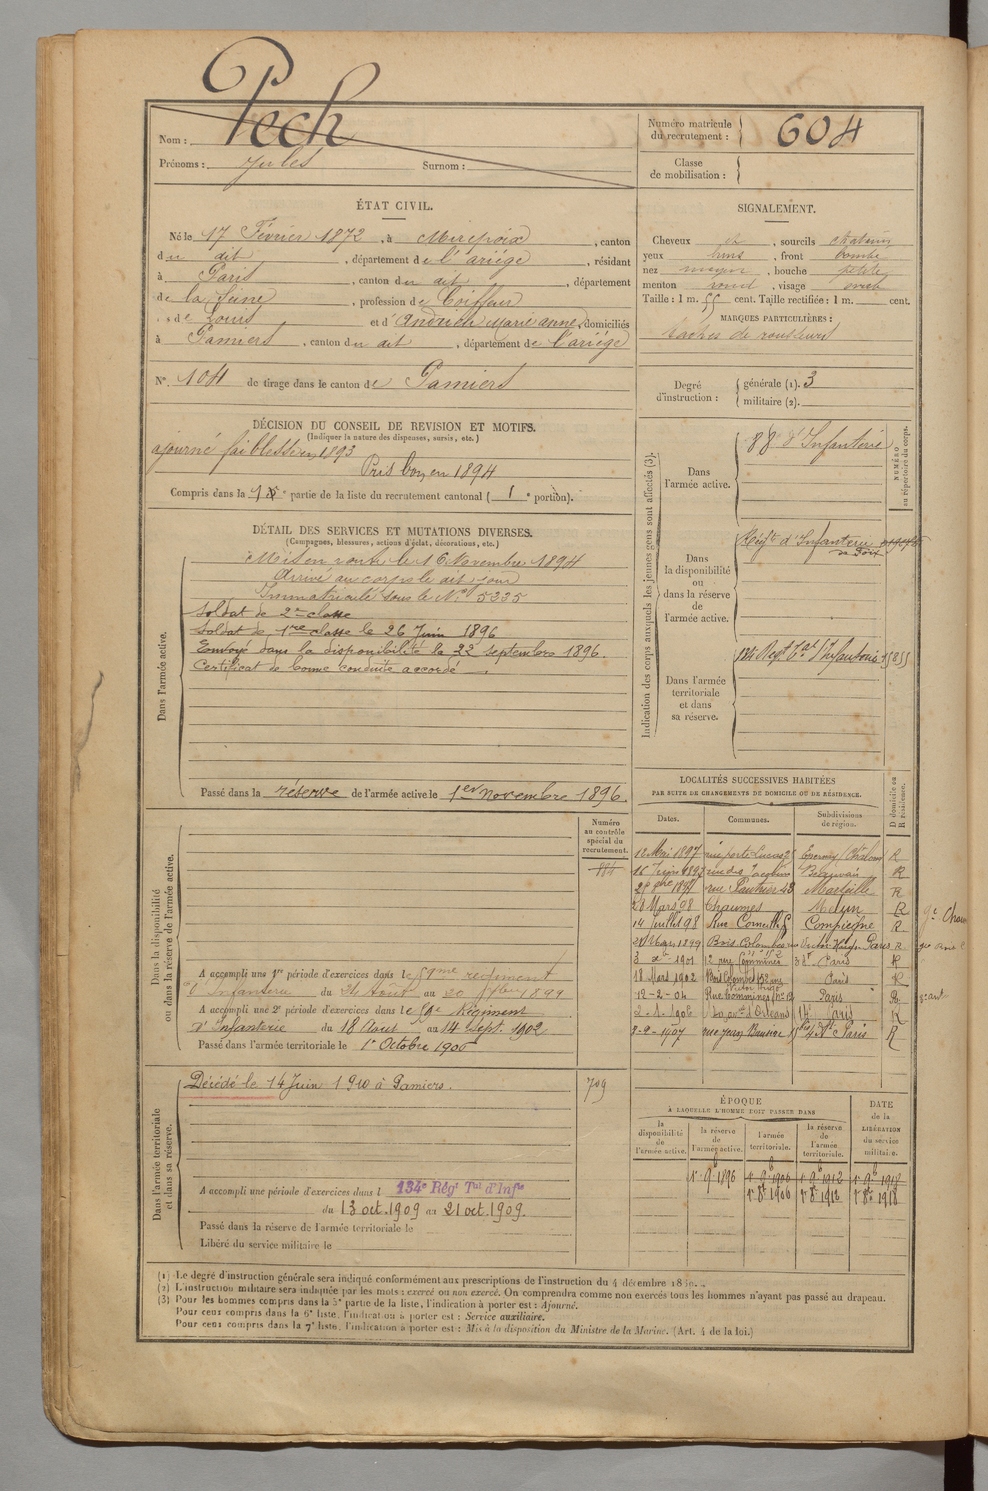 Nom : Pech
Prénoms : Jules Surnom :
Numéro matricule
du recrutement : 604
Classe
de mobilisation :
ÉTAT CIVIL.
Né le 17 Février 1872, à Mirepoix, canton
du dit, département de l'ariége, résidant
à Paris, canton du dit, département
de la Seine, profession de Coiffeur
de Louis et d'Andrieu Marie anne, domiciliés
à Pamiers, canton du dit, département de l'ariége
N° 104 de tirage dans le canton de Pamiers
SIGNALEMENT.
Cheveux ch, sourcils chatains
yeux, front bombé
nez moyen, bouche petite
menton rond, visage ovale
Taille : 1 m. 55 cent. Taille rectifiée : 1 m. cent.
MARQUES PARTICULIÈRES :
taches de rousseurs
Degré
d'instruction :
générale (1). 3
militaire (2).
DÉCISION DU CONSEIL DE REVISION ET MOTIFS.
(Indiquer la nature des dispenses, sursis, etc.)
ajourné faiblesse en 1893
Pris bon en 1894
Compris dans la 1e partie de la liste du recrutement cantonal (1e portion).
DÉTAIL DES SERVICES ET MUTATIONS DIVERSES.
(Campagnes, blessures, actions d'éclat, décorations, etc.)
Dans l'armée active.
Mis en route le 16 Novembre 1894
Arrivé au corps le dit jour
Immatriculé sous le N° 5335
Soldat de 2me classe
Soldat de 1re classe le 26 Juin 1896
Envoyé dans la disponibilité le 22 septembre 1896.
Certificat de bonne conduite accordé.
Passé dans la réserve de l'armée active le 1er novembre 1896.
Indication des corps auxquels les jeunes gens sont affectés (3).
NUMÉRO
au répertoire du corps.
Dans
l'armée active.
88e d'Infanterie
Dans
la disponibilité
ou
dans la réserve
de
l'armée active.
Régt d'Infanterie
de Foix
Dans l'armée
territoriale
et dans
sa réserve.
134 Régt Tal d'Infanterie
LOCALITÉS SUCCESSIVES HABITÉES
PAR SUITE DE CHANGEMENTS DE DOMICILE OU DE RÉSIDENCE.
D domicile ou
R résidence.
Dates. Communes. Subdivisions
de région.
12 Mai 1897 rue porte Lucas 25 Epernay (Chalons) R
16 Juin 1897 rue des Jacobins Beauvais R
rue Pautrier 48 Marseille R
28 Mars 98 Chaumes Melun R
14 Juillet 98 Rue Corneille 5 Compiègne R
Mars 1899 Bois Colombes Paris R
3 1901 12 rue Commines 3e Paris R
18 Mars 1902 Bois Colombes 152 rue Victor Hugo Paris R
12-2-04 Rue Commines no 12 Paris R
2-1-1906 av. d'Orléans 14e Paris R
2-2-1907 rue Jean Bausire 15bis 4e At Paris R
Numéro
au contrôle
spécial du
recrutement.
184
Dans la disponibilité
ou dans la réserve de l'armée active.
A accompli une 1re période d'exercices dans le 59me régiment
d'Infanterie du 24 Août au 20 7bre 1899
A accompli une 2e période d'exercices dans le 59e Régiment
d'Infanterie du 18 Aout au 14 Sept. 1902
Passé dans l'armée territoriale le 1er Octobre 1906
Dans l'armée territoriale
et dans sa réserve.
Décédé le 14 Juin 1910 à Pamiers.
709
A accompli une période d'exercices dans l 134e Régt Tal d'Infie
du 13 oct. 1909 au 21 oct. 1909.
Passé dans la réserve de l'armée territoriale le
Libéré du service militaire le
ÉPOQUE
À LAQUELLE L'HOMME DOIT PASSER DANS
DATE
de la
LIBÉRATION
du service
militaire.
la
disponibilité
de
l'armée active.
la réserve
de
l'armée active.
l'armée
territoriale.
la réserve
de
l'armée
territoriale.
1er 9b 1896 1er 9b 1906 1er 9b 1912 1er 9b 1918
1er 8b 1906 1er 8b 1912 1er 8b 1918
(1) Le degré d'instruction générale sera indiqué conformément aux prescriptions de l'instruction du 4 décembre
(2) L'instruction militaire sera indiquée par les mots : exercé ou non exercé. On comprendra comme non exercés tous les hommes n'ayant pas passé au drapeau.
(3) Pour les hommes compris dans la 5e partie de la liste, l'indication à porter est : Ajourné.
Pour ceux compris dans la 6e liste, l'indication à porter est : Service auxiliaire.
Pour ceux compris dans la 7e liste, l'indication à porter est : Mis à la disposition du Ministre de la Marine. (Art. 4 de la loi.)